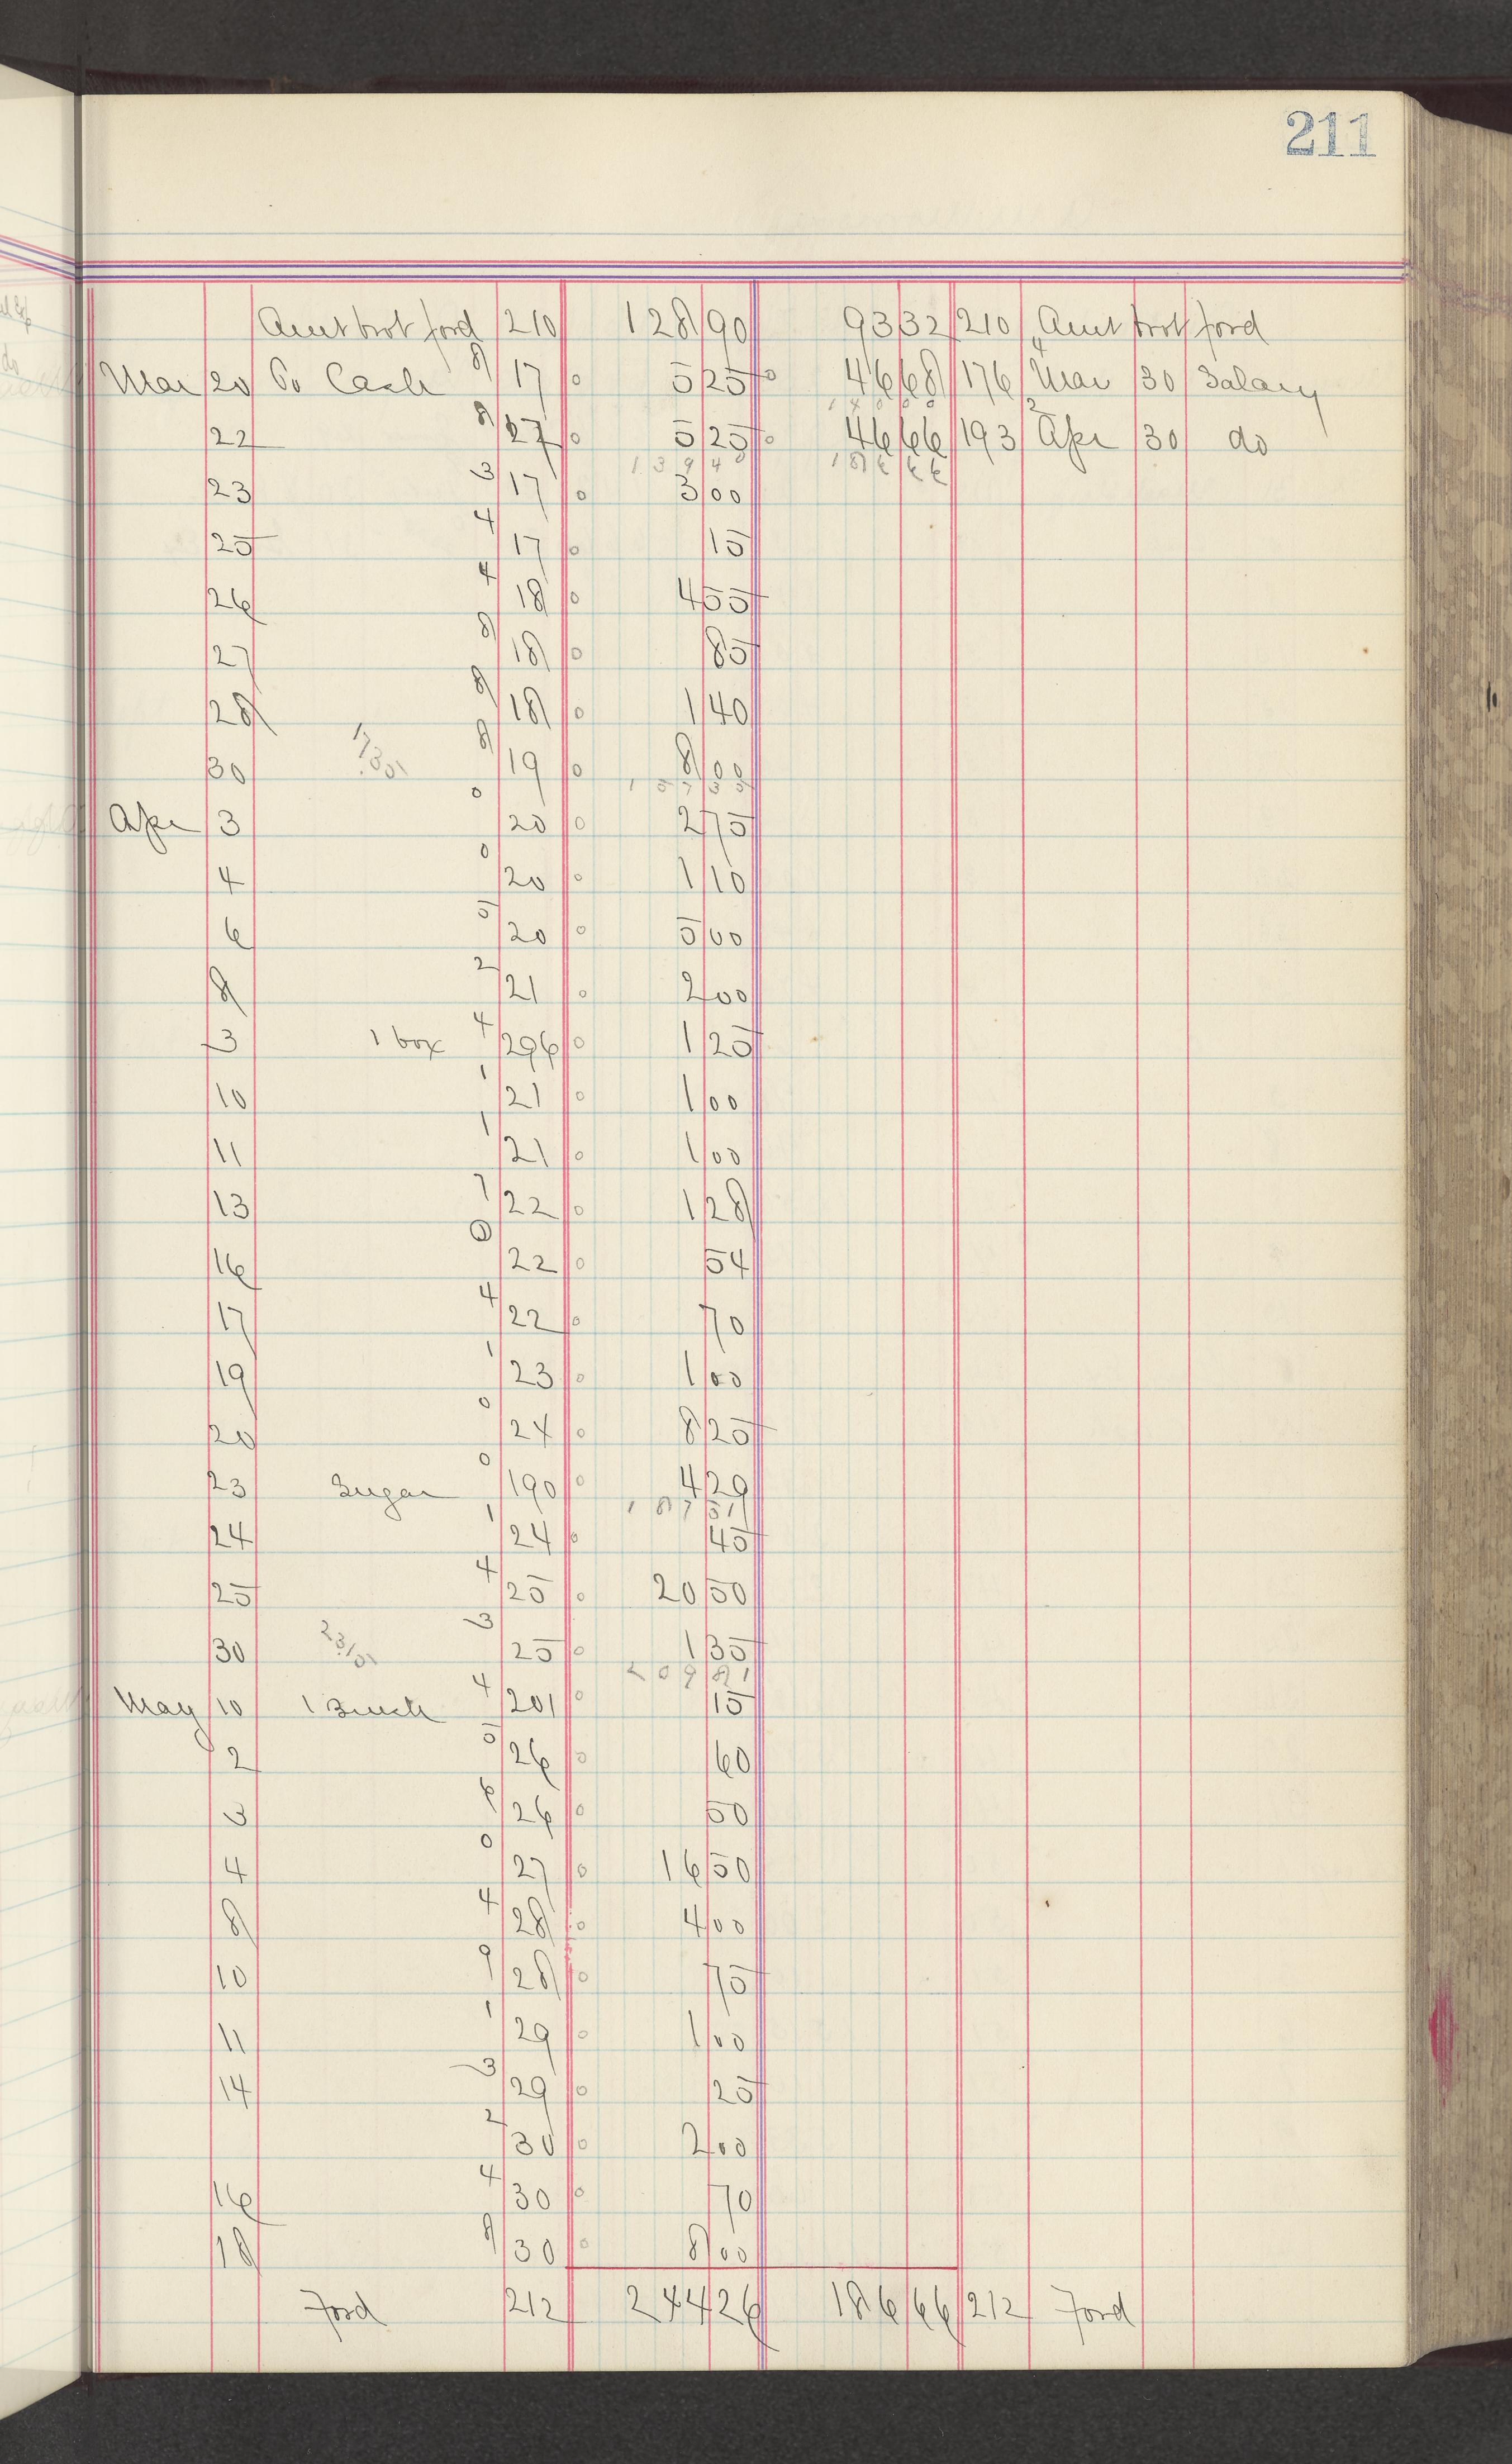 211
Amt brot ford 210 128 90 93 32 210 Amt brot ford
Mar 20 To Cash 8 17 0 5 25 0 46 68 176 4 Mar 30 Salary
1 4 0 0 0
22 8 27 0 5 25 0 46 66 193 2 Apr 30 do
1 3 9 4 0 1 8 6 6 6
23 3 17 0 3 00
25 4 17 0 15
26 4 18 0 4 55
27 8 18 0 85
28 8 18 0 1 40
30 8 19 0 8 00
1 5 7 3 5
Apr 3 0 20 0 2 75
4 0 20 0 1 10
6 5 20 0 5 00
8 2 21 0 2 00
3 1 box 4 296 0 1 25
10 1 21 0 1 00
11 1 21 0 1 00
13 7 22 0 1 28
16 0 22 0 54
17 4 22 0 70
19 1 23 0 1 00
20 0 24 0 8 25
23 Sugar 0 190 0 4 29
1 8 7 5 1
24 1 24 0 45
25 4 25 0 20 50
30 3 25 0 1 35
2 0 9 8 1
May 10 4 201 0 15
2 5 26 0 60
3 6 26 0 50
4 0 27 0 16 50
8 4 28 0 4 00
10 9 28 0 75
11 1 29 0 1 00
14 3 29 0 25
2 30 0 2 00
16 4 30 0 70
18 8 30 0 8 00
Ford 212 244 26 186 66 212 Ford